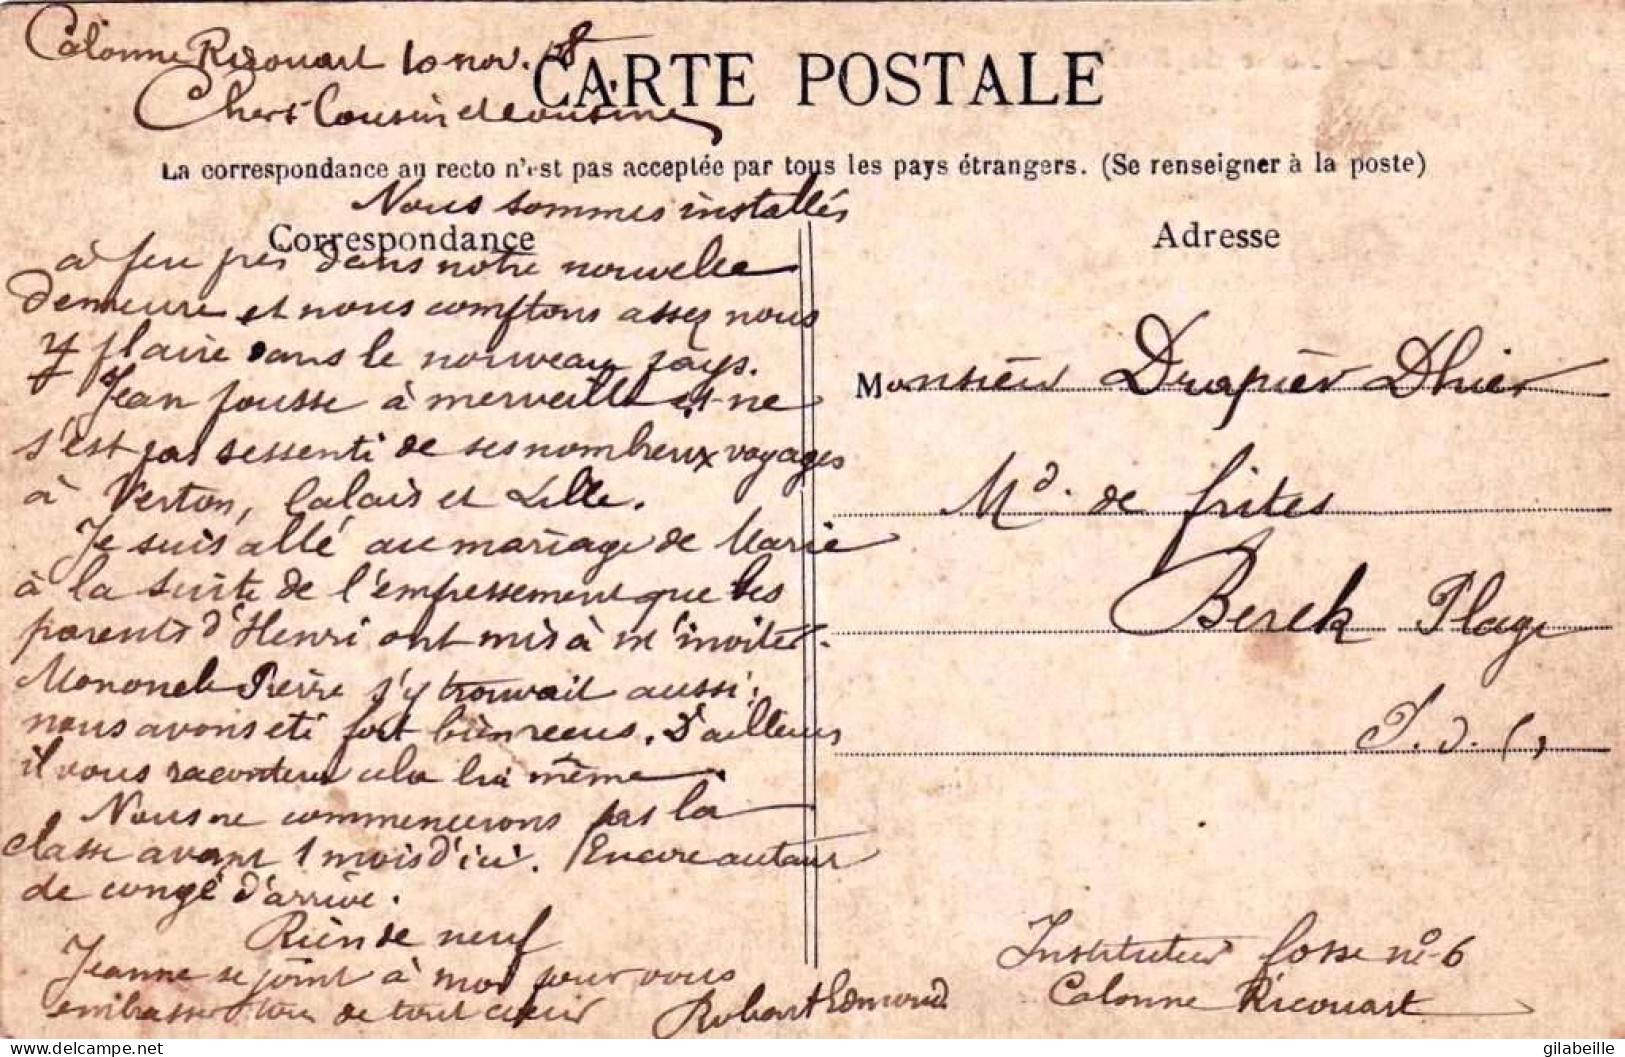 Calonne Ricouart 10 nov. 08
CARTE POSTALE
Chers Cousin et cousine
La correspondance au recto n'est pas acceptée par tous les pays étrangers. (Se renseigner à la poste)
Nous sommes installés
Correspondance
à peu près dans notre nouvelle
demeure et nous comptons assez nous
y plaire dans le nouveau pays.
Jean pousse à merveille et ne
s'est pas ressenti de ses nombreux voyages
à Verton, Calais et Lille.
Je suis allé au mariage de Marie
à la suite de l'empressement que les
parents d'Henri ont mis à m'inviter.
Mononcle Pierre s'y trouvait aussi;
nous avons eté fort bien recus. D'ailleurs
il vous racontera cela lui même.
Nous ne commencerons pas la
classe avant 1 mois d'ici. Encore autant
de congé d'arrivé.
Rien de neuf
Jeanne se joint à moi pour vous
embrasser tous de tout coeur
Robart Edmond
Adresse
Monsieur Drapier Dhier
Md. de frites
Berck Plage
P. d. C,
Instituteur fosse no 6
Calonne Ricouart
delcampe.net
gilabeille